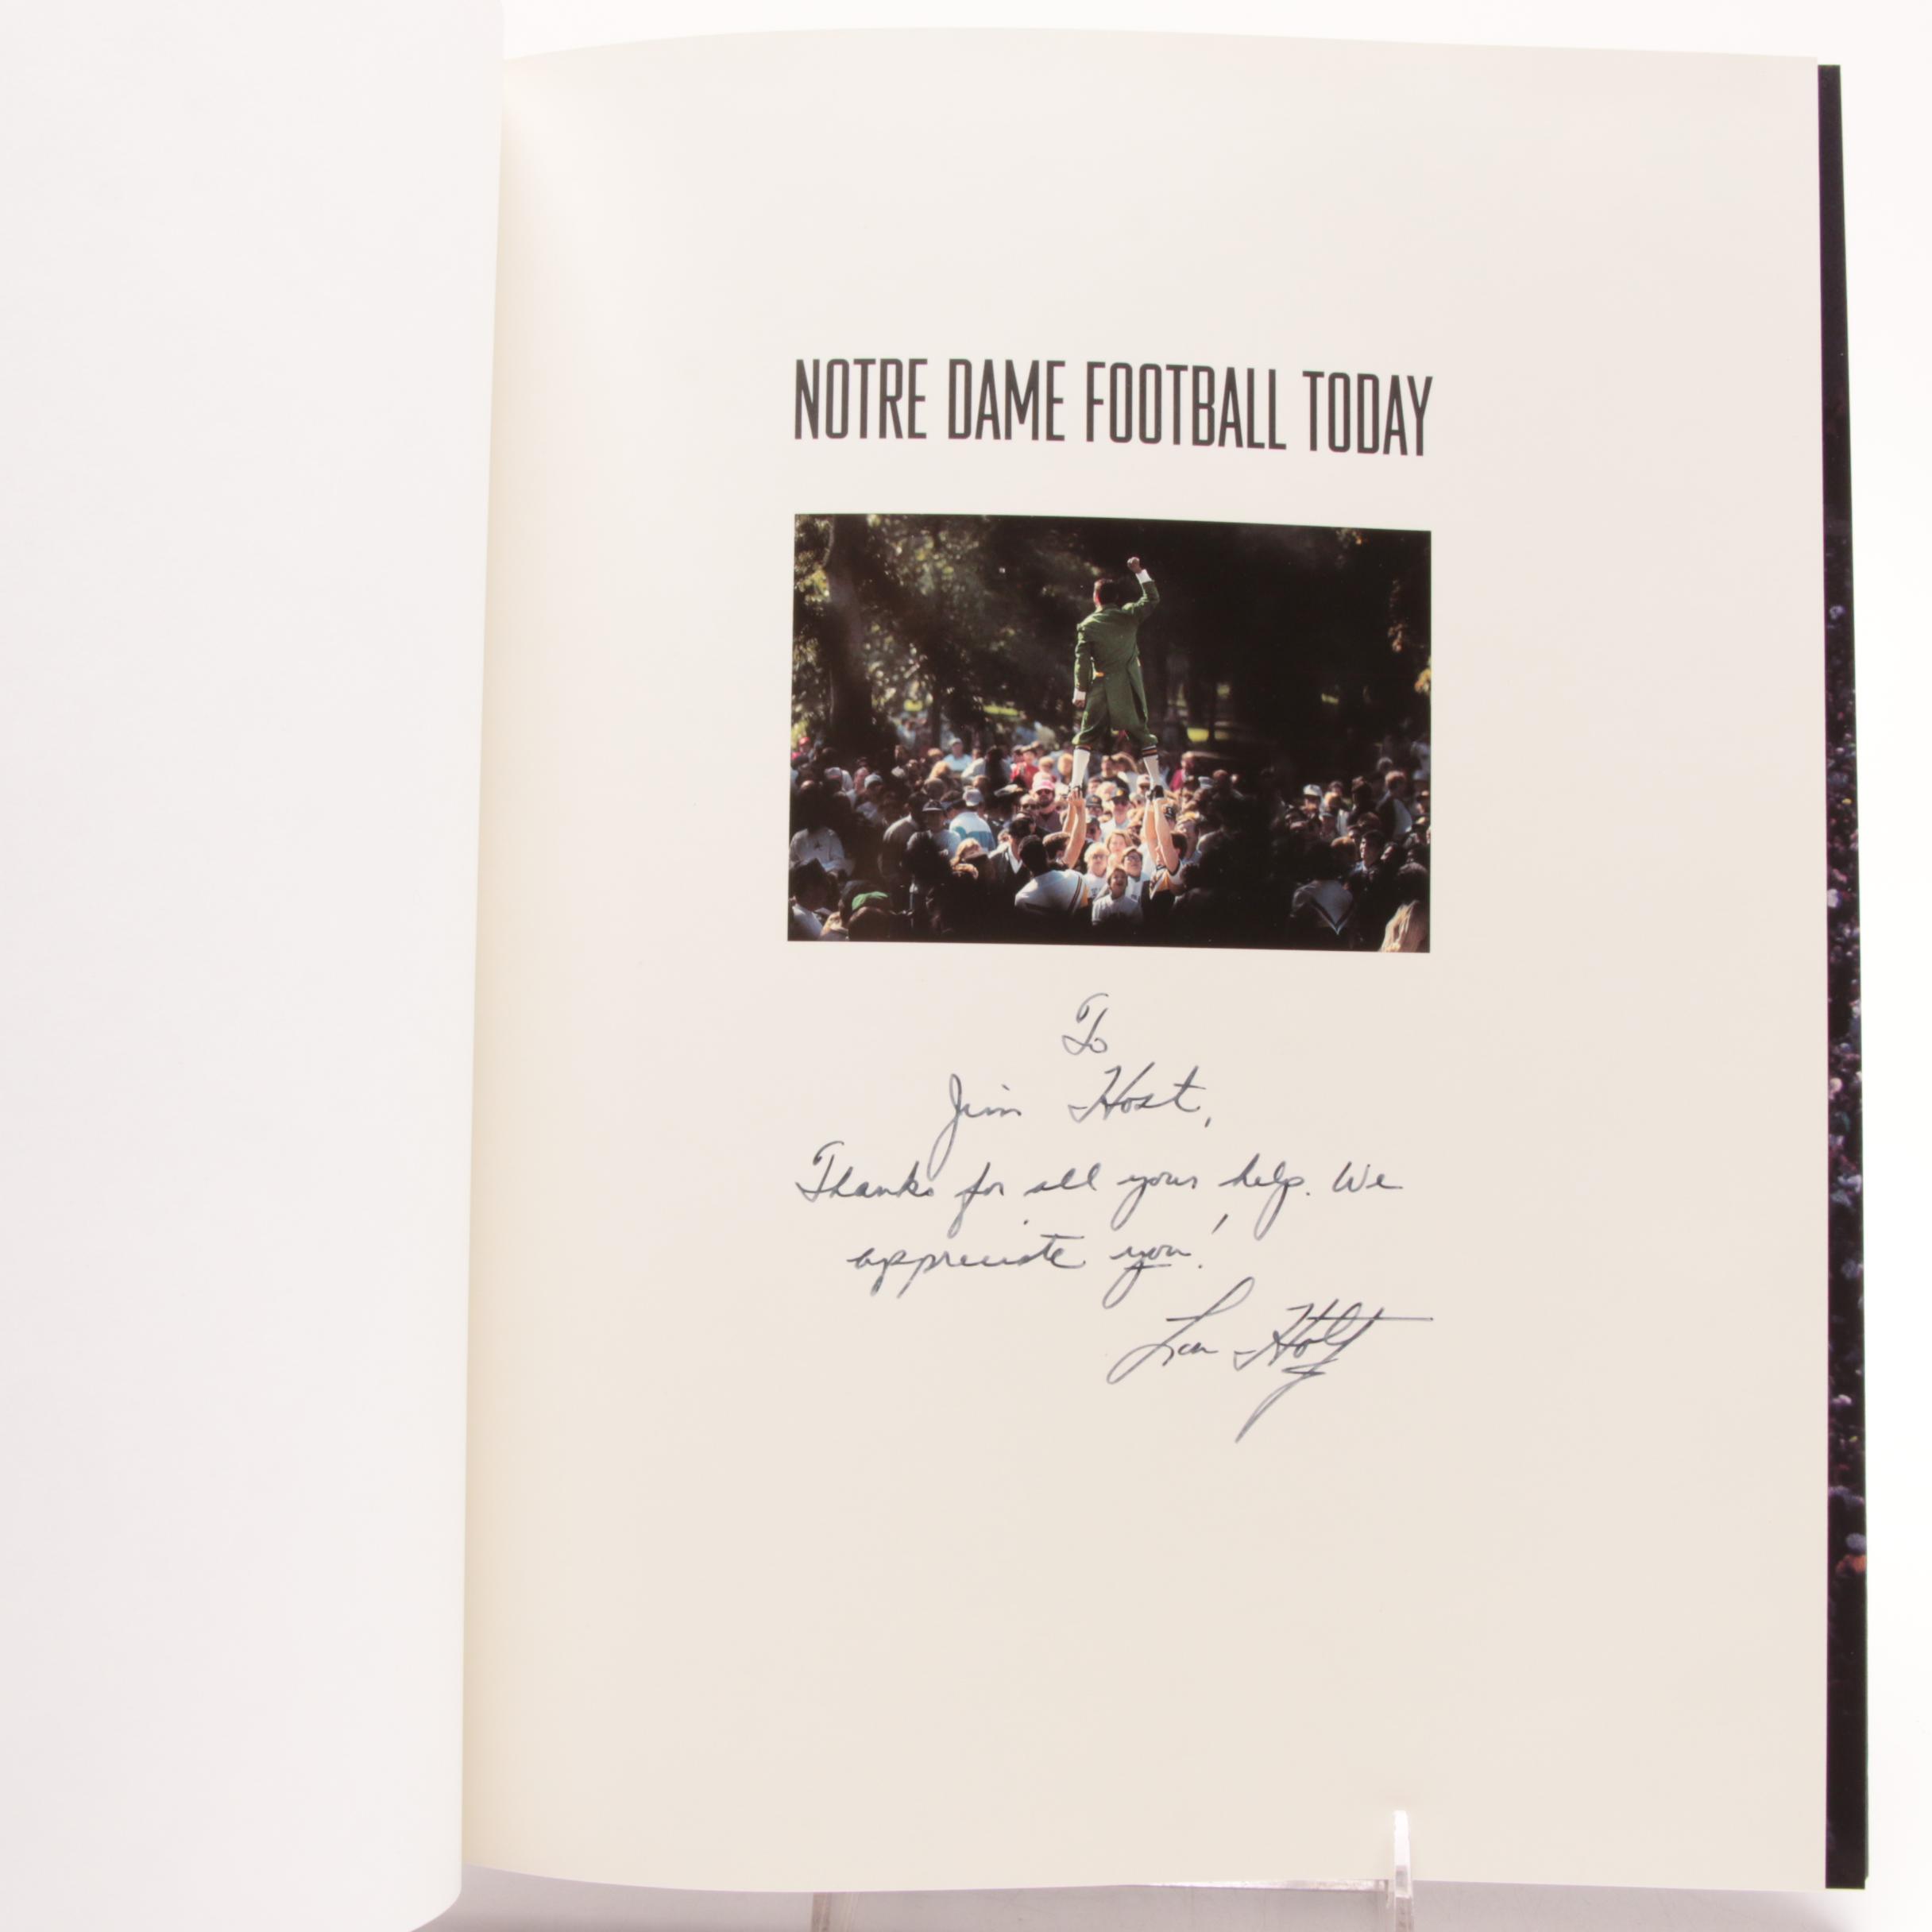 NOTRE DAME FOOTBALL TODAY
To
Jim Host,
Thanks for all your help. We
appreciate you!
Lou Holtz